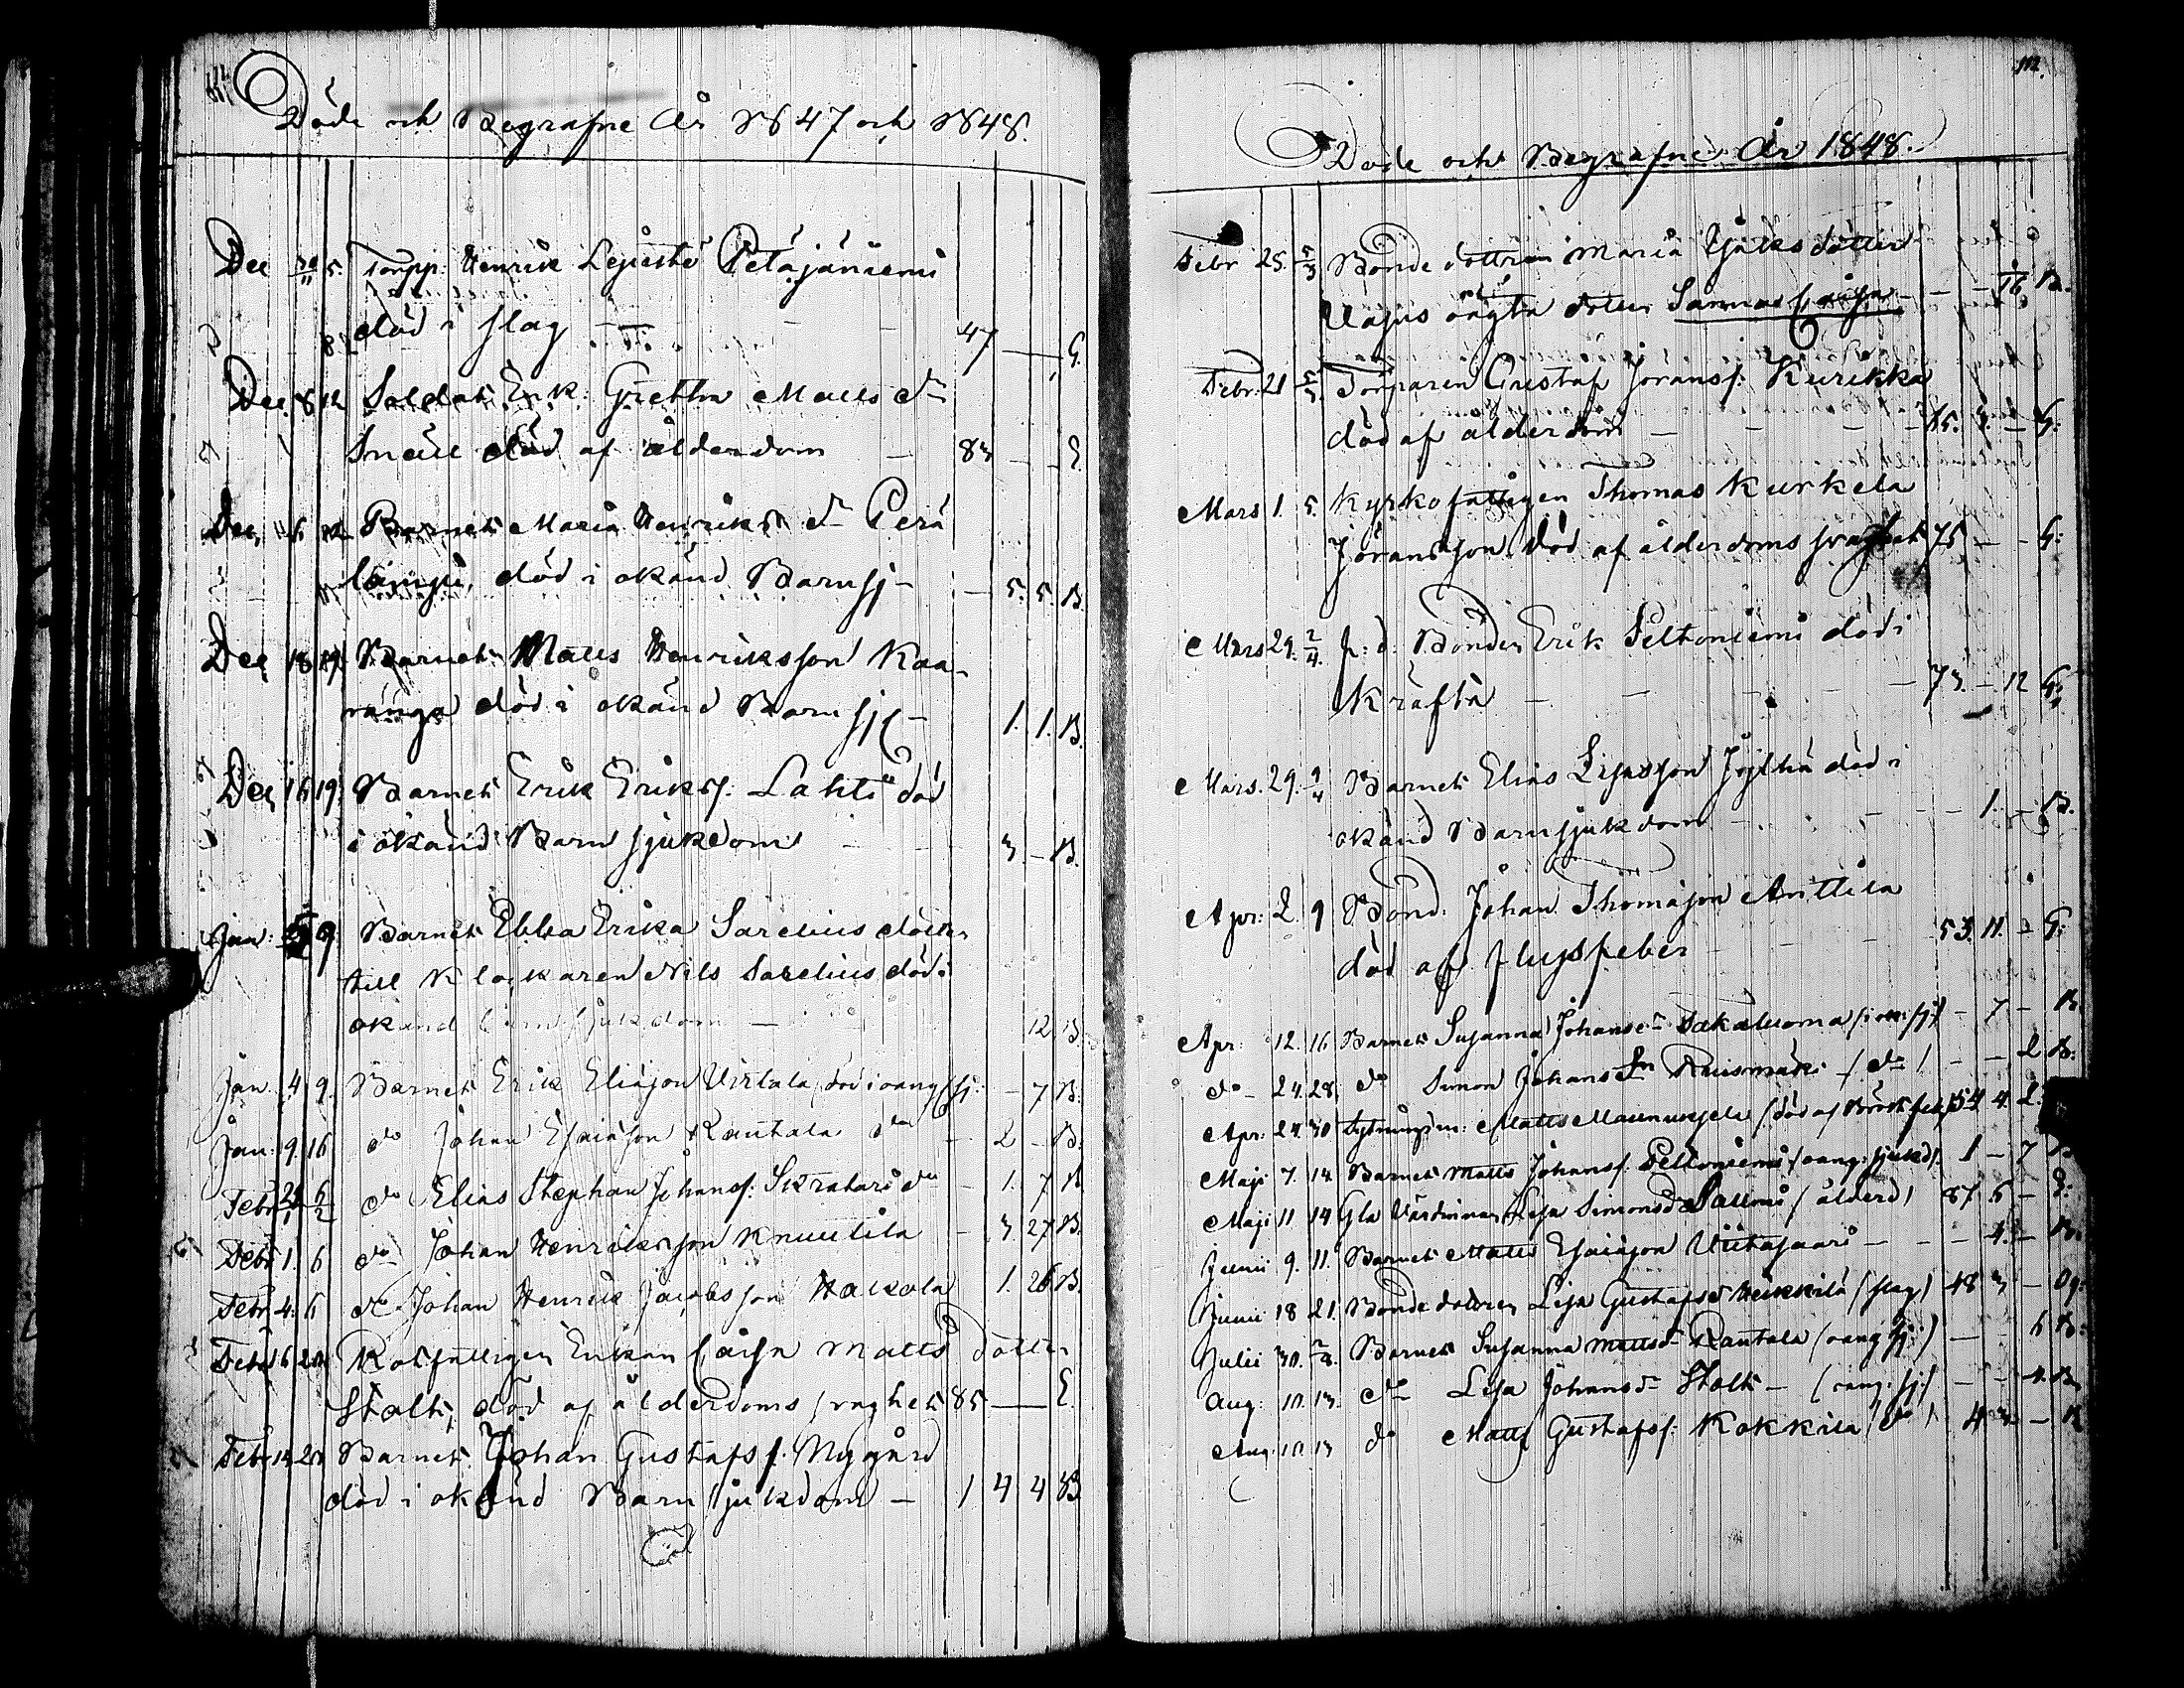 Döde och Begrafne År 1847 och 1848.
Dec 30/11 5. Torpp: Henrik Petäjäniemi
död i slag - - - 47 - - G.
Dec. 8 12 Soldat: Enk: Gretha Matts dr
Snäll död af ålderdom - 83 - - E.
Dec. 6 12 Barnet Maria Henriks dr Perä
lampi, död i okänd Barnsj - - 5. 5. B.
Dec 18 19. Barnet Matts Henriksson Kaa-
ranga död i okänd Barn sj - 1. 1. B.
Dec 16 19. Barnet Erik Eriks s. Lahti död
i okänd Barn sjukdom - 3. - B.
Jan: 5 9 Barnet Ebba Erika Sarelius dotter
till Klockaren Nils Sarelius död i
okänd barnsjukdom - 12 B.
Jan. 4. 9. Barnet Erik Eliasson Virtala, död i oang sj: - 7 B.
Jan. 9. 16 do Johan Esaiasson Rantala do - 2 - B.
Febr 28/1 6/2 do Elias Stephan Johanss. Skratars do - 1. 7 B
Febr 1. 6 do Johan Henriksson Knuutila - 3 27 B.
Febr 4. 6 do Johan Henrik Jacobsson Hakola 1. 26 B.
Febr 6 20 Rotfattigen Enkan Caisa Matts dotter
Stolt, död af ålderdoms svaghet 85 - - E.
Febr 13 20 Barnet Johan Gustafs s. Nygård
död i okänd Barnsjukdom - 1 4 4 B
112.
Döde och Begrafne År 1848.
Febr 25. 5/3 Bonde dottren Maria
oägta dotter Sanna Caisa - - 16 B.
Febr: 21 5/3 Torparen Gustaf Jöranss: Kurikka
död af ålderdom - - - 65. 4. - G.
Mars 1. 5. Kyrkofattigen Thomas Kurkela
Jöransson död af ålderdoms svaghet 75 - - G:
Mars 29. 2/4. f: d: Bonden Erik Peltoniemi död i
kräfta - - - 73. - 12 G:
Mars. 29. 9/4 Barnet Elias död i
okänd Barnsjukdom - - - 1. - B.
Apr: 2. 9 Bond: Johan Thomasson Anttila
död af flussfeber - - 53. 11. - G:
Apr: 12. 16 Barnet Susanna Johans dr Takaluoma - 7 - B.
do - 24. 28. do Simon Johans Sn Ruismäki (do) - - 2 B.
Apr: 24. 30 Matts 54 4. 2.
Maji 7. 14 Barnet Matts Johans s. Peltoniemi (oang: sjukd) 1 - 7 B
Maji 11 14 Gla Värdinnan Lisa Simonsdr Salmi (ålderd) 87. 6 - E:
Junii 9. 11. Barnet Matts Esaiasson Viitasaari - - - 4. - B.
Junii 18 21. Bonde dottren Lisa Gustafsdr Heikkilä (slag) 48 3 - Og:
Julii 30. 2/8. Barnet Susanna Mattsdr Rantala (oang sj:) - - 6 B.
Aug: 10. 13. do Lisa Johansdr Stolt - (oang: sj:) - - 4. B.
Aug 10. 13 do Matts Gustafss. Kokkila (do) 4 3 - B